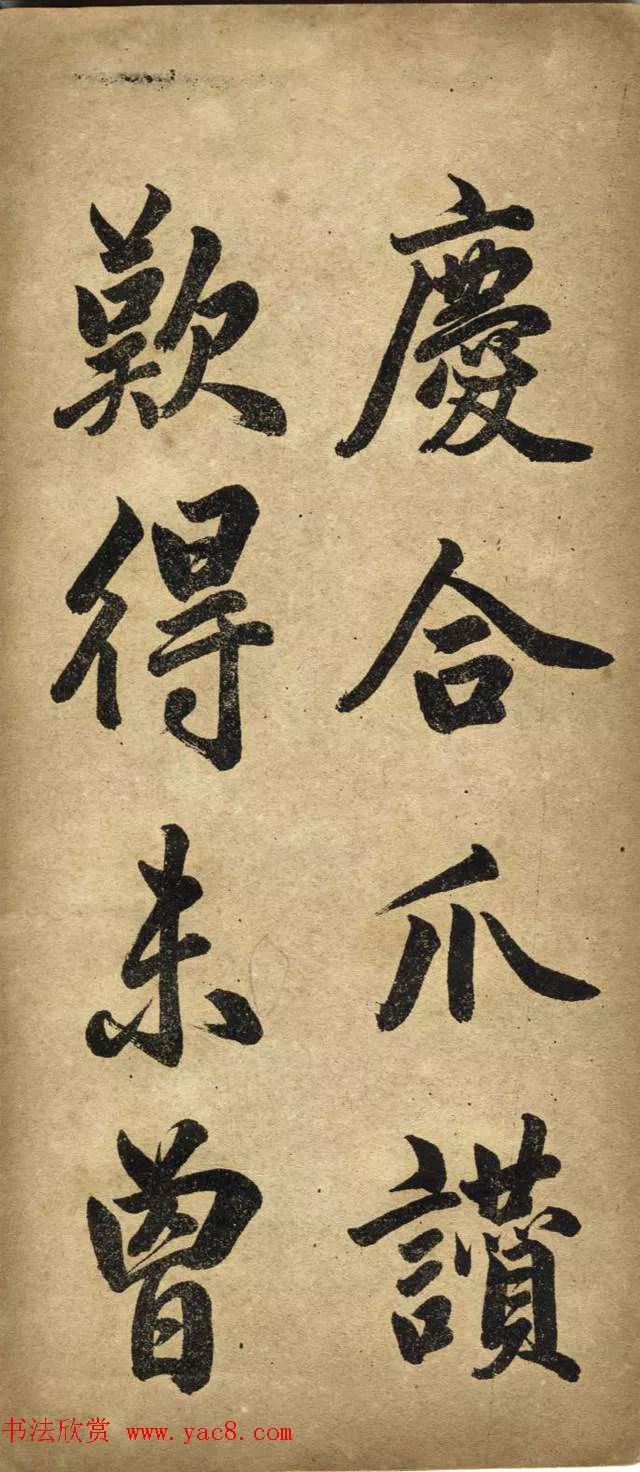 慶合爪讃
歎得未曾
书法欣赏 www.yac8.com